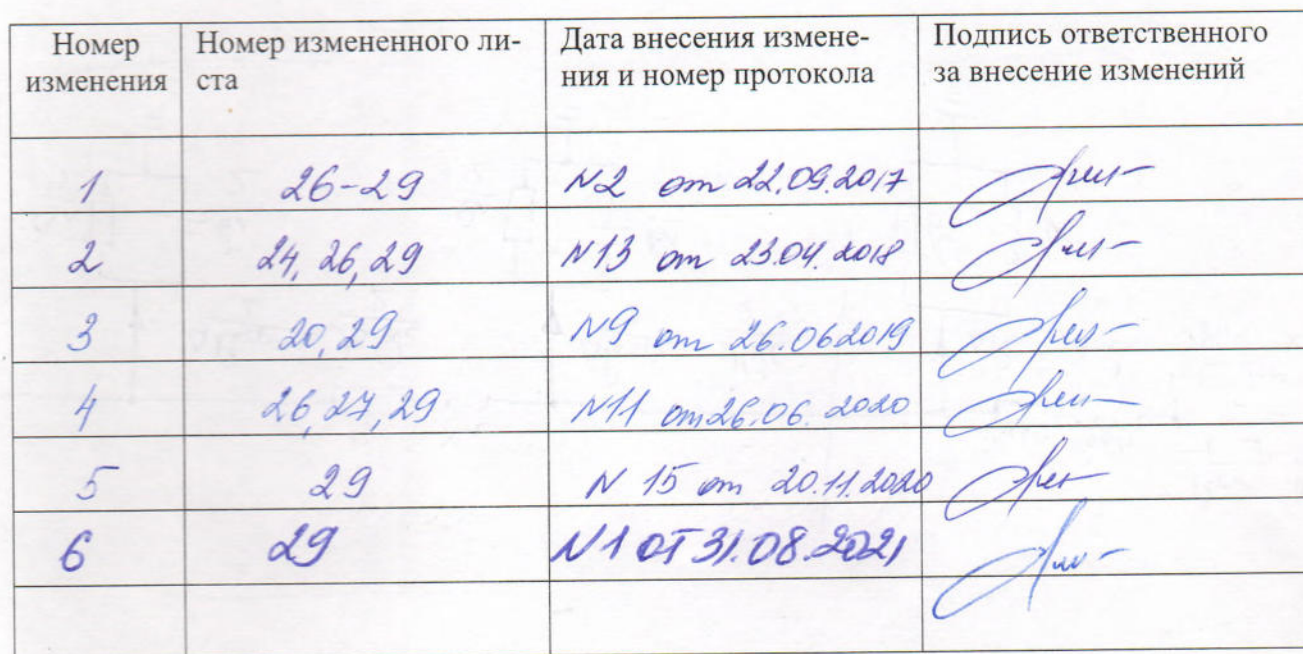 Номер изменения Номер измененного ли-ста Дата внесения измене-ния и номер протокола Подпись ответственного за внесение изменений
1 26-29 N2 от 22.09.2017
2 24, 26, 29 N13 от 23.04.2018
3 20, 29 N9 от 26.06.2019
4 26, 27, 29 N11 от 26.06.2020
5 29 N 15 от 20.11.2020
6 29 N1 ОТ 31.08.2021